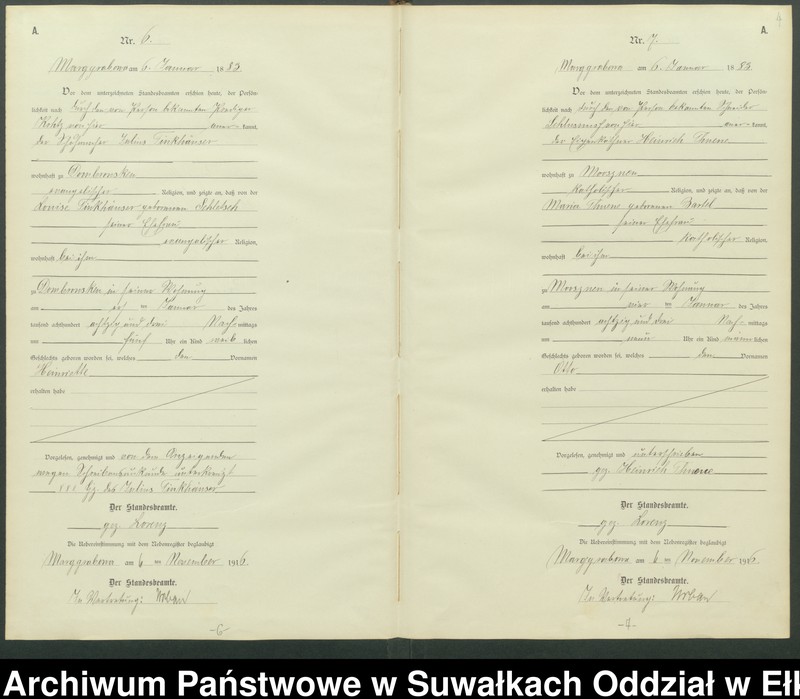 A.
Nr. 6.
Marggrabowa am 6. Januar 1883.
Vor dem unterzeichneten Standesbeamten erschien heute, der Persön-
lichkeit nach durch den von Person bekannten
von hier aner- kannt,
der Julius Funkhäuser
wohnhaft zu Dombrowsken
evangelischer Religion, und zeigte an, daß von der
Louise Funkhäuser geborenen
seiner Ehefrau
evangelischer Religion,
wohnhaft bei ihm
zu Dombrowsken in seiner Wohnung
am ten Januar des Jahres
tausend achthundert achtzig und drei Nach mittags
um fünf Uhr ein Kind weib lichen
Geschlechts geboren worden sei, welches den Vornamen
Henriette
erhalten habe
Vorgelesen, genehmigt und von dem Anzeigenden
wegen Schreibensunkunde unterkreuzt
+++ Hz. des Julius Funkhäuser
Der Standesbeamte.
gez. Lorenz
Die Uebereinstimmung mit dem Nebenregister beglaubigt
Marggrabowa am 6 ten November 1916.
Der Standesbeamte.
In Vertretung: Urban
-6-
4
A.
Nr. 7.
Marggrabowa am 6. Januar 1883.
Vor dem unterzeichneten Standesbeamten erschien heute, der Persön-
lichkeit nach durch den von Person bekannten
von hier aner- kannt,
der Eigenkäthner Heinrich
wohnhaft zu Moosznen
katholischer Religion, und zeigte an, daß von der
Maria geborenen Bartel
seiner Ehefrau
katholischer Religion,
wohnhaft bei ihm
zu Moosznen in seiner Wohnung
am vier ten Januar des Jahres
tausend achthundert achtzig und drei Nach mittags
um neun Uhr ein Kind männ lichen
Geschlechts geboren worden sei, welches den Vornamen
Otto
erhalten habe
Vorgelesen, genehmigt und unterschrieben
gez. Heinrich
Der Standesbeamte.
gez. Lorenz
Die Uebereinstimmung mit dem Nebenregister beglaubigt
Marggrabowa am 6 ten November 1916.
Der Standesbeamte.
In Vertretung: Urban
-7-
Archiwum Państwowe w Suwałkach Oddział w Eł